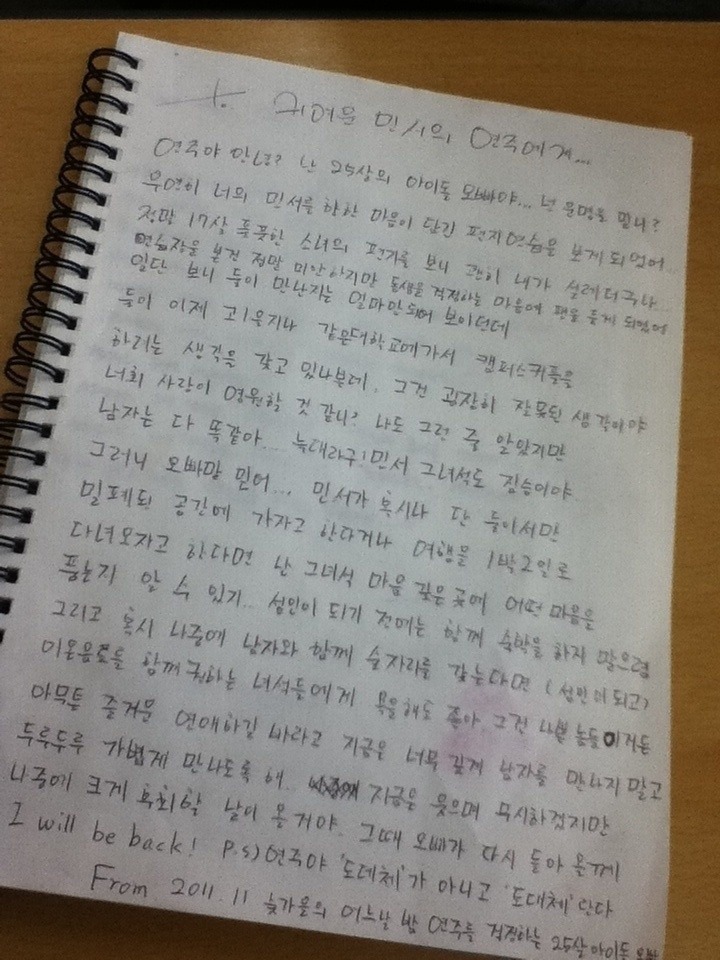 귀여운 민서의 연주에게...
연주야 안녕? 난 25살의 아이돌 오빠야... 넌 운명을 믿니?
우연히 너의 민서를 향한 마음이 담긴 편지연습을 보게 되었어..
정말 17살 풋풋한 소녀의 편지를 보니 괜히 내가 설레더구나..
연습장을 본건 정말 미안하지만 동생을 걱정하는 마음에 펜을 들게 되었어
일단 보니 둘이 만난지는 얼마안되어 보이던데
둘이 이제 고1을지나 같은대학교에가서 캠퍼스커플을
하려는 생각을 갖고 있나본데, 그건 굉장히 잘못된 생각이야
너희 사랑이 영원할 것 같니? 나도 그런 줄 알았지만
남자는 다 똑같아... 늑대라구! 민서 그녀석도 짐승이야.
그러니 오빠말 믿어... 민서가 혹시나 단 둘이서만
밀폐된 공간에 가자고 한다거나 여행을 1박2일로
다녀오자고 한다면 난 그녀석 마음 깊은 곳에 어떤마음을
품는지 알 수 있지... 성인이 되기 전에는 함께 숙박을 하지 말으렴
그리고 혹시 나중에 남자와 함께 술자리를 갖는다면 (성인이 되고)
이온음료를 함께 권하는 녀석들에게 욕을해도 좋아. 그건 나쁜 놈들이거든
아무튼 즐거운 연애하길 바라고 지금은 너무 깊게 남자를 만나지 말고
두루두루 가볍게 만나도록 해.. 지금은 웃으며 무시하겠지만
나중에 크게 후회할 날이 올거야. 그때 오빠가 다시 돌아 올께
I will be back! P.S) 연주야 '도데체'가 아니고 '도대체'란다
From 2011.11 늦가을의 어느날 밤 연주를 걱정하는 25살아이돌 오빠